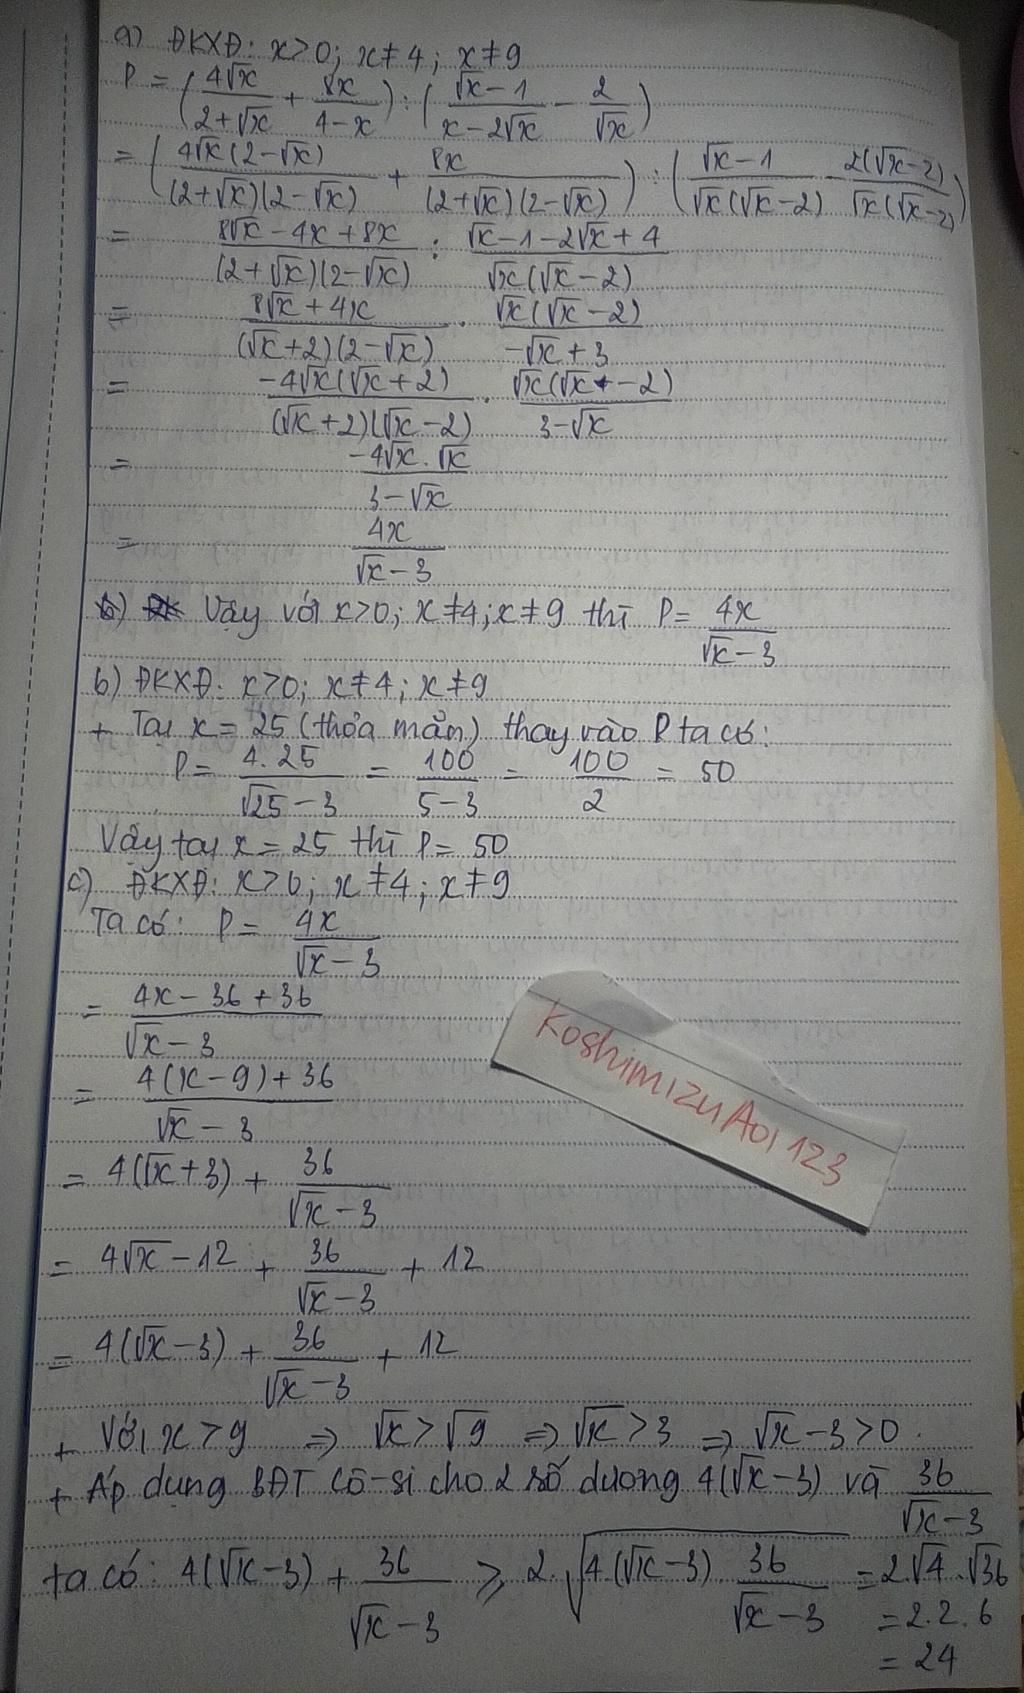 a) ĐKXĐ: x>0; x≠4; x≠9
P = (4√x/(2+√x) + 8x/(4-x)) : ((√x-1)/(x-2√x) - 2/√x)
= (4√x(2-√x)/((2+√x)(2-√x)) + 8x/((2+√x)(2-√x))) : ((√x-1)/(√x(√x-2)) - 2(√x-2)/(√x(√x-2)))
= (8√x-4x+8x)/((2+√x)(2-√x)) : (√x-1-2√x+4)/(√x(√x-2))
= (8√x+4x)/((√x+2)(2-√x)) . √x(√x-2)/(-√x+3)
= -4√x(√x+2)/((√x+2)(√x-2)) . √x(√x-2)/(3-√x)
= -4√x.√x/(3-√x)
= 4x/(√x-3)
Vậy với x>0; x≠4; x≠9 thì P = 4x/(√x-3)
b) ĐKXĐ: x>0; x≠4; x≠9
+ Tại x = 25 (thỏa mãn) thay vào P ta có:
P = 4.25/(√25-3) = 100/(5-3) = 100/2 = 50
Vậy tại x = 25 thì P = 50
c) ĐKXĐ: x>0; x≠4; x≠9
Ta có: P = 4x/(√x-3)
= (4x-36+36)/(√x-3)
= (4(x-9)+36)/(√x-3)
= 4(√x+3) + 36/(√x-3)
= 4√x-12 + 36/(√x-3) + 12
= 4(√x-3) + 36/(√x-3) + 12
KoshimizuAoi123
+ Với x>9 => √x>√9 => √x>3 => √x-3>0.
+ Áp dụng BĐT Cô-si cho 2 số dương 4(√x-3) và 36/(√x-3)
ta có: 4(√x-3) + 36/(√x-3) ≥ 2.√(4.(√x-3).36/(√x-3)) = 2.√4.√36
= 2.2.6
= 24